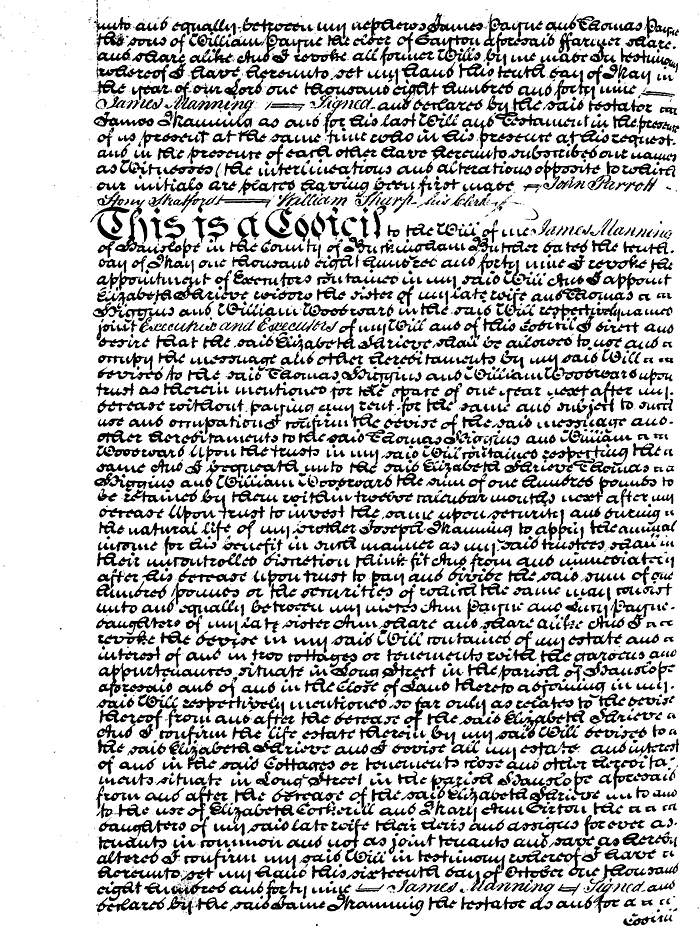 unto and equally between my nephews James Payne and Thomas Payne
the sons of William Payne the elder of Gayton aforesaid ffarmer share
and share alike And I revoke all former Wills by me made In testimony
whereof I have hereunto set my hand this tenth day of May in
the year of our Lord one thousand eight hundred and forty nine
James Manning Signed and declared by the said testator
James Manning as and for his last Will and Testament in the presence
of us present at the same time who in his presence at his request
and in the presence of each other have hereunto subscribed our names
as Witnesses (the interlineations and alterations opposite to which
our initials are placed having been first made John Parrott
Stony Stratford William Sharp his Clerk
This is a Codicil to the Will of me James Manning
of Hanslope in the County of Buckingham Butcher dated the tenth
day of May one thousand eight hundred and forty nine I revoke the
appointment of Executors contained in my said Will And I appoint
Elizabeth Shrieve widow the sister of my late wife and Thomas
Higgins and William Woodward in the said Will respectively named
joint Executrix and Executors of my Will and of this Codicil I direct and
desire that the said Elizabeth Shrieve shall be allowed to use and
occupy the messuage and other hereditaments by my said Will
devised to the said Thomas Higgins and William Woodward upon
trust as therein mentioned for the space of one year next after my
decease without paying any rent for the same and subject to such
use and occupation I confirm the devise of the said messuage and
other hereditaments to the said Thomas Higgins and William
Woodward Upon the trusts in my said Will contained respecting the
same And I bequeath unto the said Elizabeth Shrieve Thomas
Higgins and William Woodward the sum of one hundred pounds to
be retained by them within twelve calendar months next after my
decease Upon trust to invest the same upon security and during
the natural life of my brother Joseph Manning to apply the annual
income for his benefit in such manner as my said trustees shall in
their uncontrolled discretion think fit And from and immediately
after his decease Upon trust to pay and divide the said sum of one
hundred pounds or the securities of which the same may consist
unto and equally between my nieces Ann Payne and Lucy Payne
daughters of my late sister Ann share and share alike And I
revoke the devise in my said Will contained of my estate and
interest of and in two cottages or tenements with the gardens and
appurtenances situate in Long Street in the parish of Hanslope
aforesaid and of and in the Close of Land thereto adjoining in my
said Will respectively mentioned so far only as relates to the devise
thereof from and after the decease of the said Elizabeth Shrieve
And I confirm the life estate therein by my said Will devised to
the said Elizabeth Shrieve and I devise all my estate and interest
of and in the said Cottages or tenements close and other heredita
ments situate in Long Street in the parish Hanslope aforesaid
from and after the decease of the said Elizabeth Shrieve unto and
to the use of Elizabeth Cockerill and Mary Ann Girton the
daughters of my said late wife their heirs and assigns for ever as
tenants in common and not as joint tenants and save as hereby
altered I confirm my said Will in testimony whereof I have
hereunto set my hand this sixteenth day of October one thousand
eight hundred and forty nine James Manning Signed and
declared by the said James Manning the testator as and for a
Codicil